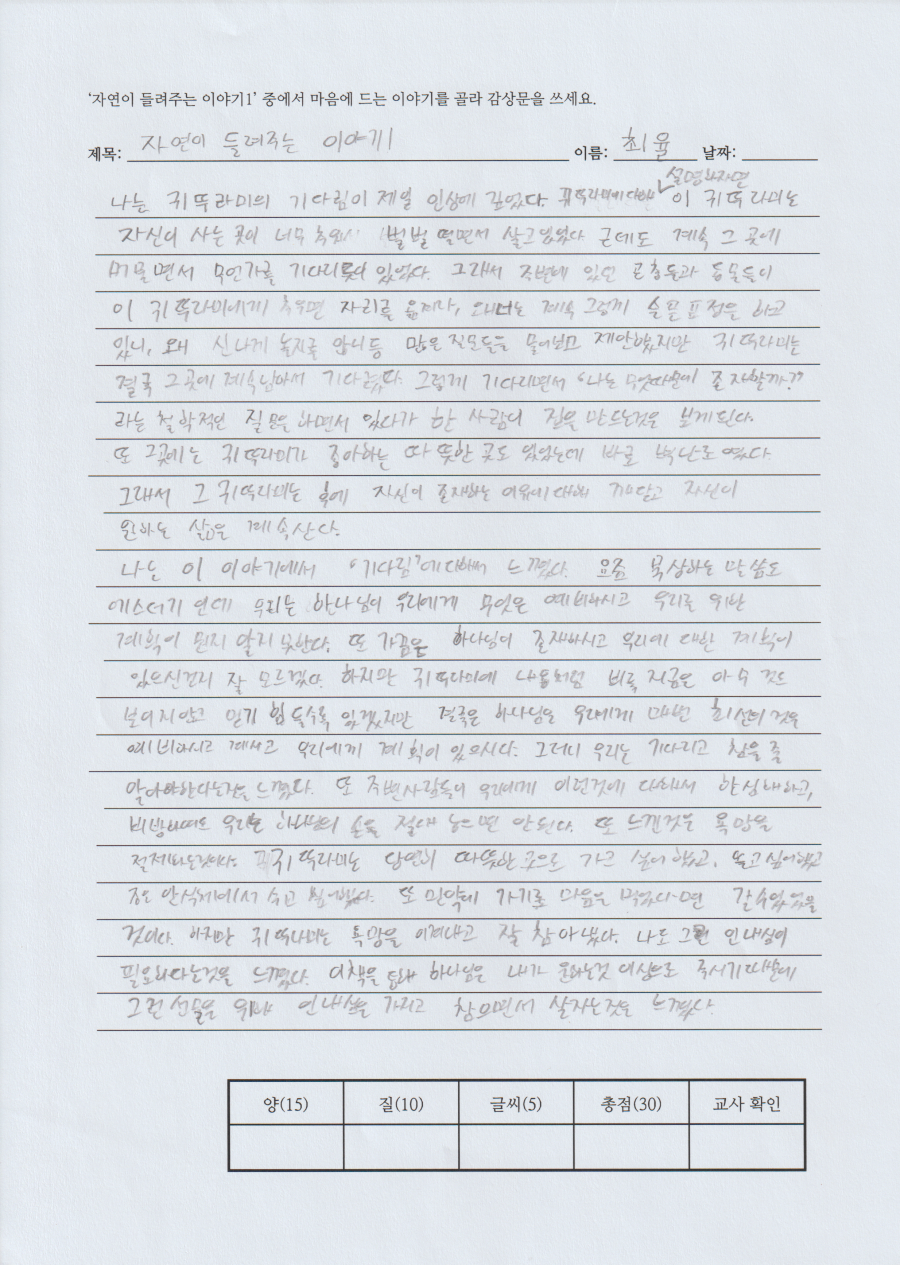 '자연이 들려주는 이야기1' 중에서 마음에 드는 이야기를 골라 감상문을 쓰세요.
제목: 자연이 들려주는 이야기1 이름: 최율 날짜:
설명하자면
나는 귀뚜라미의 기다림이 제일 인상에 깊었다. 이 귀뚜라미는
자신이 사는 곳이 너무 추워서 벌벌 떨면서 살고있었다 근데도 계속 그 곳에
머물면서 무언가를 기다리고 있었다. 그래서 주변에 있던 곤충들과 동물들이
이 귀뚜라미에게 추우면 자리를 옮겨라, 왜 너는 계속 그렇게 슬픈 표정을 하고
있니, 왜 신나게 놀지를 않니등 많은 질문들을 물어보고 제안했지만 귀뚜라미는
결국 그곳에 계속남아서 기다렸다. 그렇게 기다리면서 "나는 무엇때문에 존재할까?"
라는 철학적인 질문을 하면서 있다가 한 사람이 집을 만드는것을 보게된다.
또 그곳에는 귀뚜라미가 좋아하는 따뜻한 곳도 있었는데 바로 벽난로였다.
그래서 그 귀뚜라미는 후에 자신이 존재하는 이유에 대해 깨닫고 자신이
원하는 삶을 계속산다.
나는 이 이야기에서 "기다림"에 대해서 느꼈다. 요즘 묵상하는 말씀도
에스더기 인데 우리는 하나님이 우리에게 무엇을 예비하시고 우리를 위한
계획이 뭔지 알지 못한다. 또 가끔은 하나님이 존재하시고 우리에 대한 계획이
있으신건지 잘 모르겠다. 하지만 귀뚜라미에 나온것처럼 비록 지금은 아무 것도
보이지않고 믿기 힘들수도 있겠지만 결국은 하나님은 우리에게 매번 최선의 것을
예비하시고 계시고 우리에게 계획이 있으시다. 그러니 우리는 기다리고 참을 줄
알아야한다는것을 느꼈다. 또 주변사람들이 우리에게 이런것에 대해서 한심해하고,
비방하여도 우리는 하나님의 손을 절대 놓으면 안된다. 또 느낀것은 욕망을
절제하는것이다. 귀뚜라미는 당연히 따뜻한 곳으로 가고 싶어 했고, 놀고싶어했고
좋은 안식처에서 쉬고 싶어했다. 또 만약에 가기로 마음을 먹었다면 갈수있었을
것이다. 하지만 귀뚜라미는 욕망을 이겨내고 잘 참아냈다. 나도 그런 인내심이
필요하다는것을 느꼈다. 이책을 통해 하나님은 내가 원하는것 이상으로 주시기 때문에
그런 선물을 위해 인내심을 가지고 참으면서 살자는것을 느꼈다.
양(15) 질(10) 글씨(5) 총점(30) 교사 확인